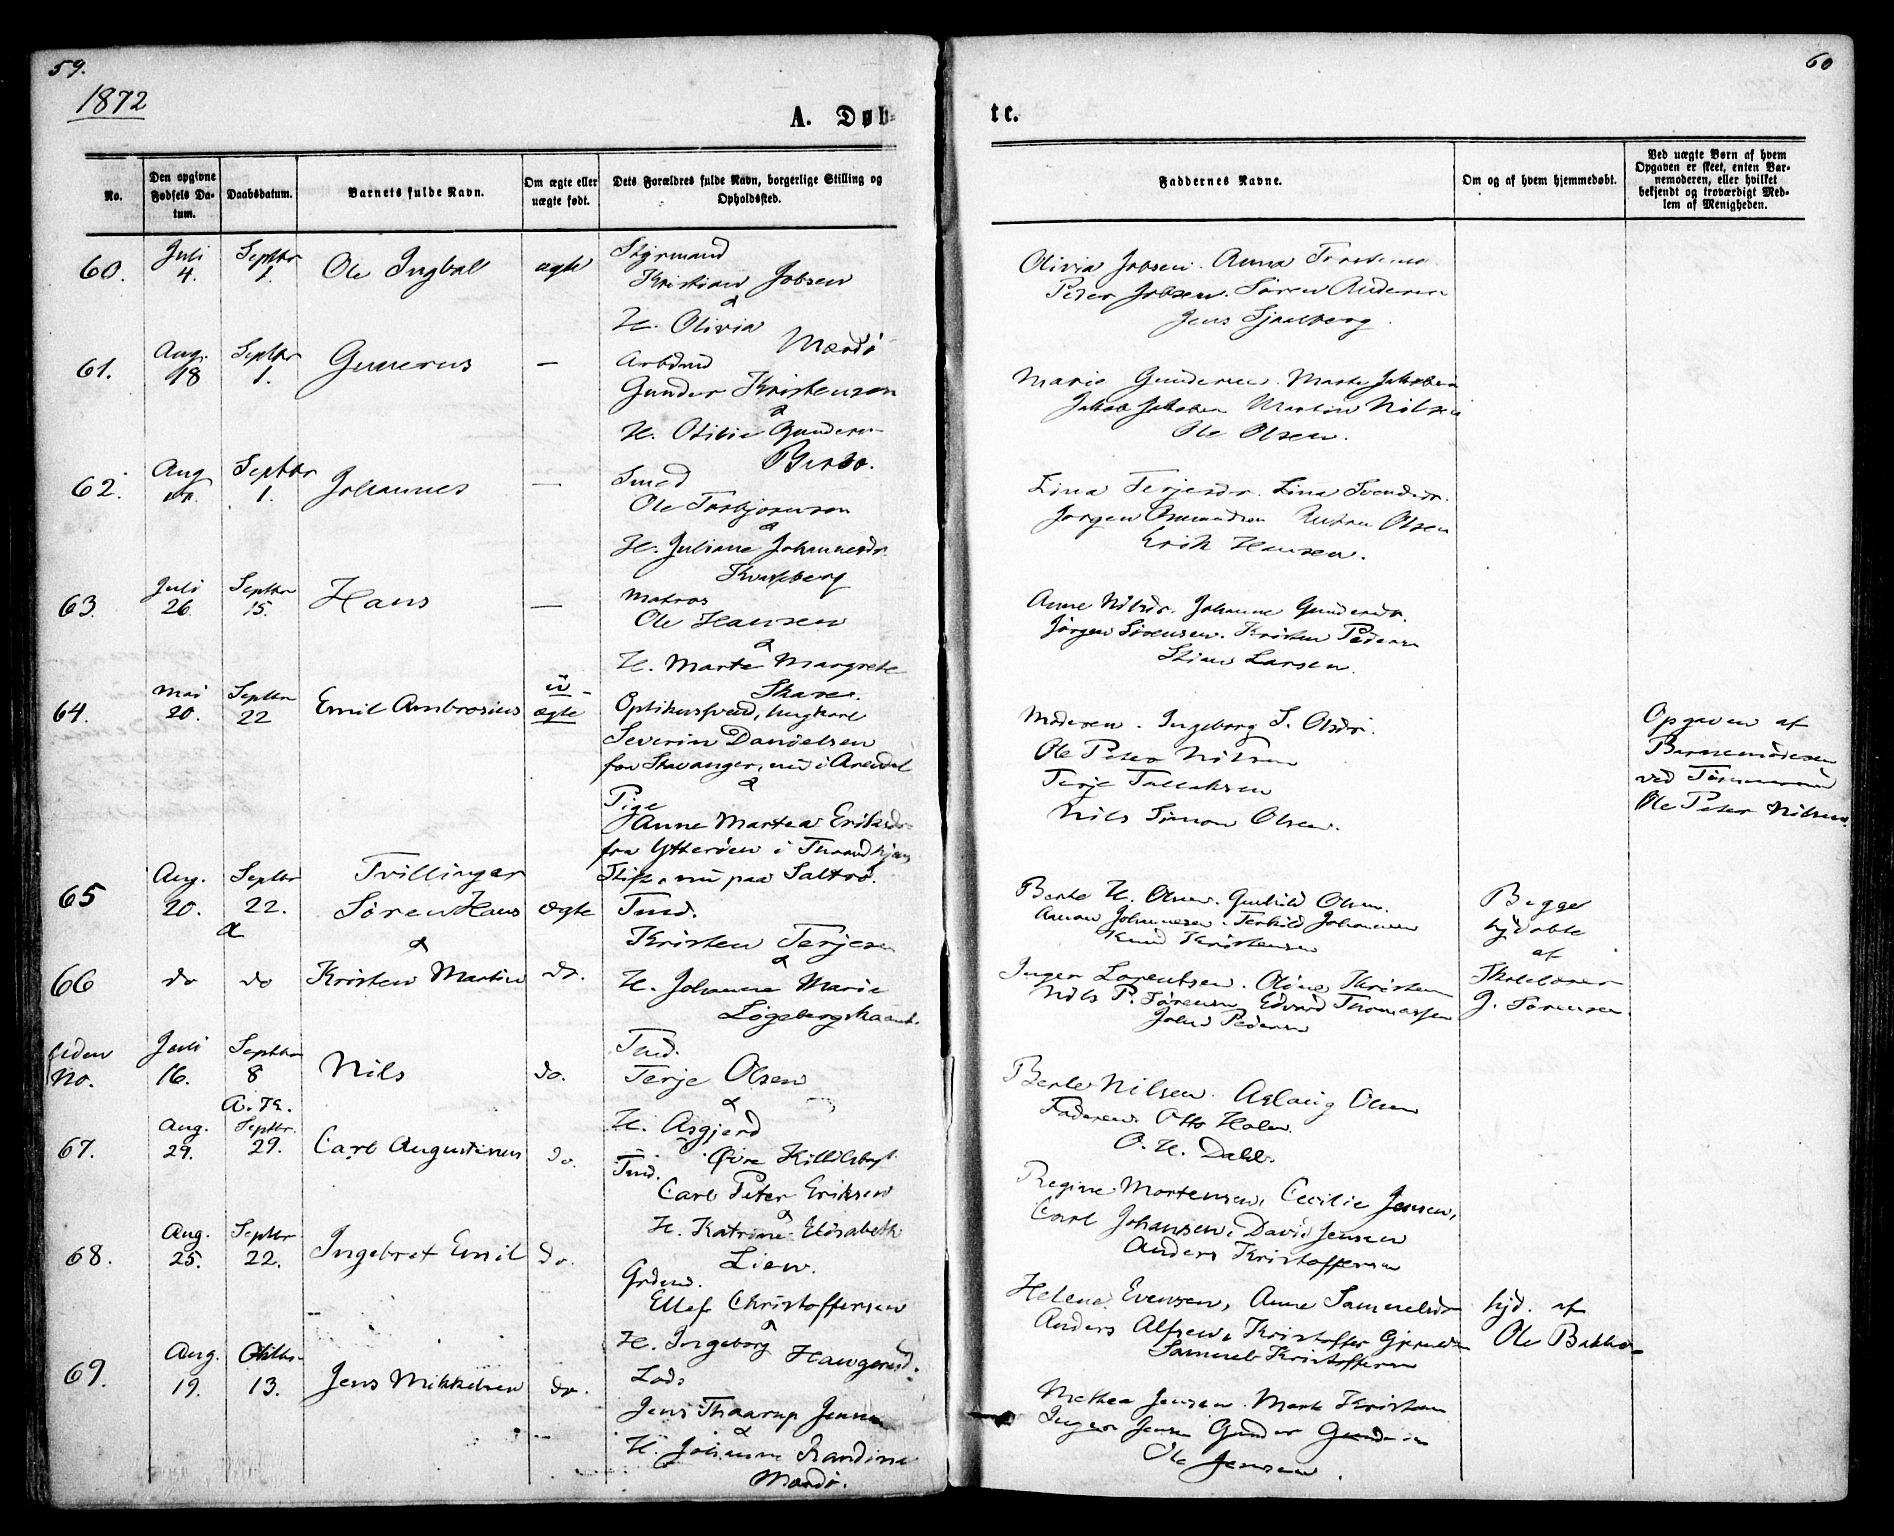 59.
60
1872
A. Døb-
te.
No.
Den opgivne Fødsels Da-
tum.
Daabsdatum.
Barnets fulde Navn.
Om ægte eller
uægte født.
Dets Forældres fulde Navn, borgerlige Stilling og
Opholdssted.
Faddernes Navne.
Om og af hvem hjemmedøbt.
Ved uægte Børn af hvem
Opgaven er skeet, enten Bar-
nemoderen, eller hvilket
bekjendt og troværdigt Med-
lem af Menigheden.
60.
Juli
4.
Septbr
1.
Ole Ingbal
ægte
Styrmand
Kristian Jobsen
&
H. Olivia
Mærdø
Olivia Jobsen. Anna
Peder Jobsen. Søren Andersen
Jens
61.
Aug.
18
Septbr
1.
Gunerus
—
Arbdmd
Gunder Kristensen
&
H. Otilie Gunders
Marie Gundersen. Marte Jakobsen
Jakob Jakobsen Martin Nilsen
Ole Olsen.
62.
Aug
Septbr
1.
Johannes
—
Smed
Ole Torbjørnsen
&
H. Juliane Johannesdr.
Lina Terjesdr. Lina Svendsdr.
Jørgen Osmundsen Olsen
Erik Hansen.
63.
Juli
26.
Septbr
15.
Hans
—
Matros
Ole Hansen
&
H. Marte Margrete
Skare.
Anne Nilsdr. Johanne Gundersdr.
Jørgen Sørensen. Kristen Pedersen
Larsen.
64.
Mai
20.
Septbr
22
Emil Ambrosius
u-
ægte
Ungkarl
Severin Danielsen
fra Stavanger, nu i Arendal
&
Pige
Anne Martea Eriksdr.
fra Ytterøen i Throndhjems
Stift, nu paa Saltrø.
Moderen. Ingeborg S. Olsdr.
Ole Peter Nilsen
Terje Tallaksen
Nils Simon Olsen.
Opgaven af
Barnemoderen
ved Tømmermd
Ole Peter Nilsen.
65
Aug.
20.
Septbr
22.
&
Tvillinger
Søren Hans
&
ægte
Tmd.
Kristen Terjesen
&
H. Johanne Marie
Berte H. Olsen. Gunhild Olsen.
Johannesen. Terkild Johannesen
Knud Kristensen
Begge
hjdøbte
af
Skolelærer
J. Sørensen.
66
do
do
Kristen Martin
do.
Inger Lorentsen. Oline Kristensen
Nils P. Sørensen, Edvard Thomassen
Pedersen
uden
No.
Juli
16.
Septbr
8
A. K.
Nils
do.
Tmd.
Terje Olsen
&
H. Asgjerd
Øvre
Berte Nilsen. Aslaug Olsen
Faderen. Otto Holm.
O. H. Dahl.
67.
Aug.
29.
Septbr.
29.
Carl Augustinus
do.
Tmd.
Carl Peter Eriksen
&
H. Katrine Elisabeth
Lien.
Regine Mortensen, Cecilie Jensen,
Carl Johansen, David Jensen
Anders Kristoffersen
68.
Aug.
25.
Septbr
22.
Ingebret Emil
do.
Grdmd.
Ellef Christoffersen
&
H. Ingeborg
Helene Evensen, Anne Samuelsdr
Anders Alfsen, Kristoffer
Samuel Kristoffersen
hjd. af
Ole
69.
Aug.
19.
Oktbr.
13.
Jens Mikkelsen
do.
Lods
Jens Thaarup Jensen
&
H. Johanne Randine
Mærdø.
Mathea Jensen. Marte Kristensen
Inger Jensen Gunder
Ole Jensen.